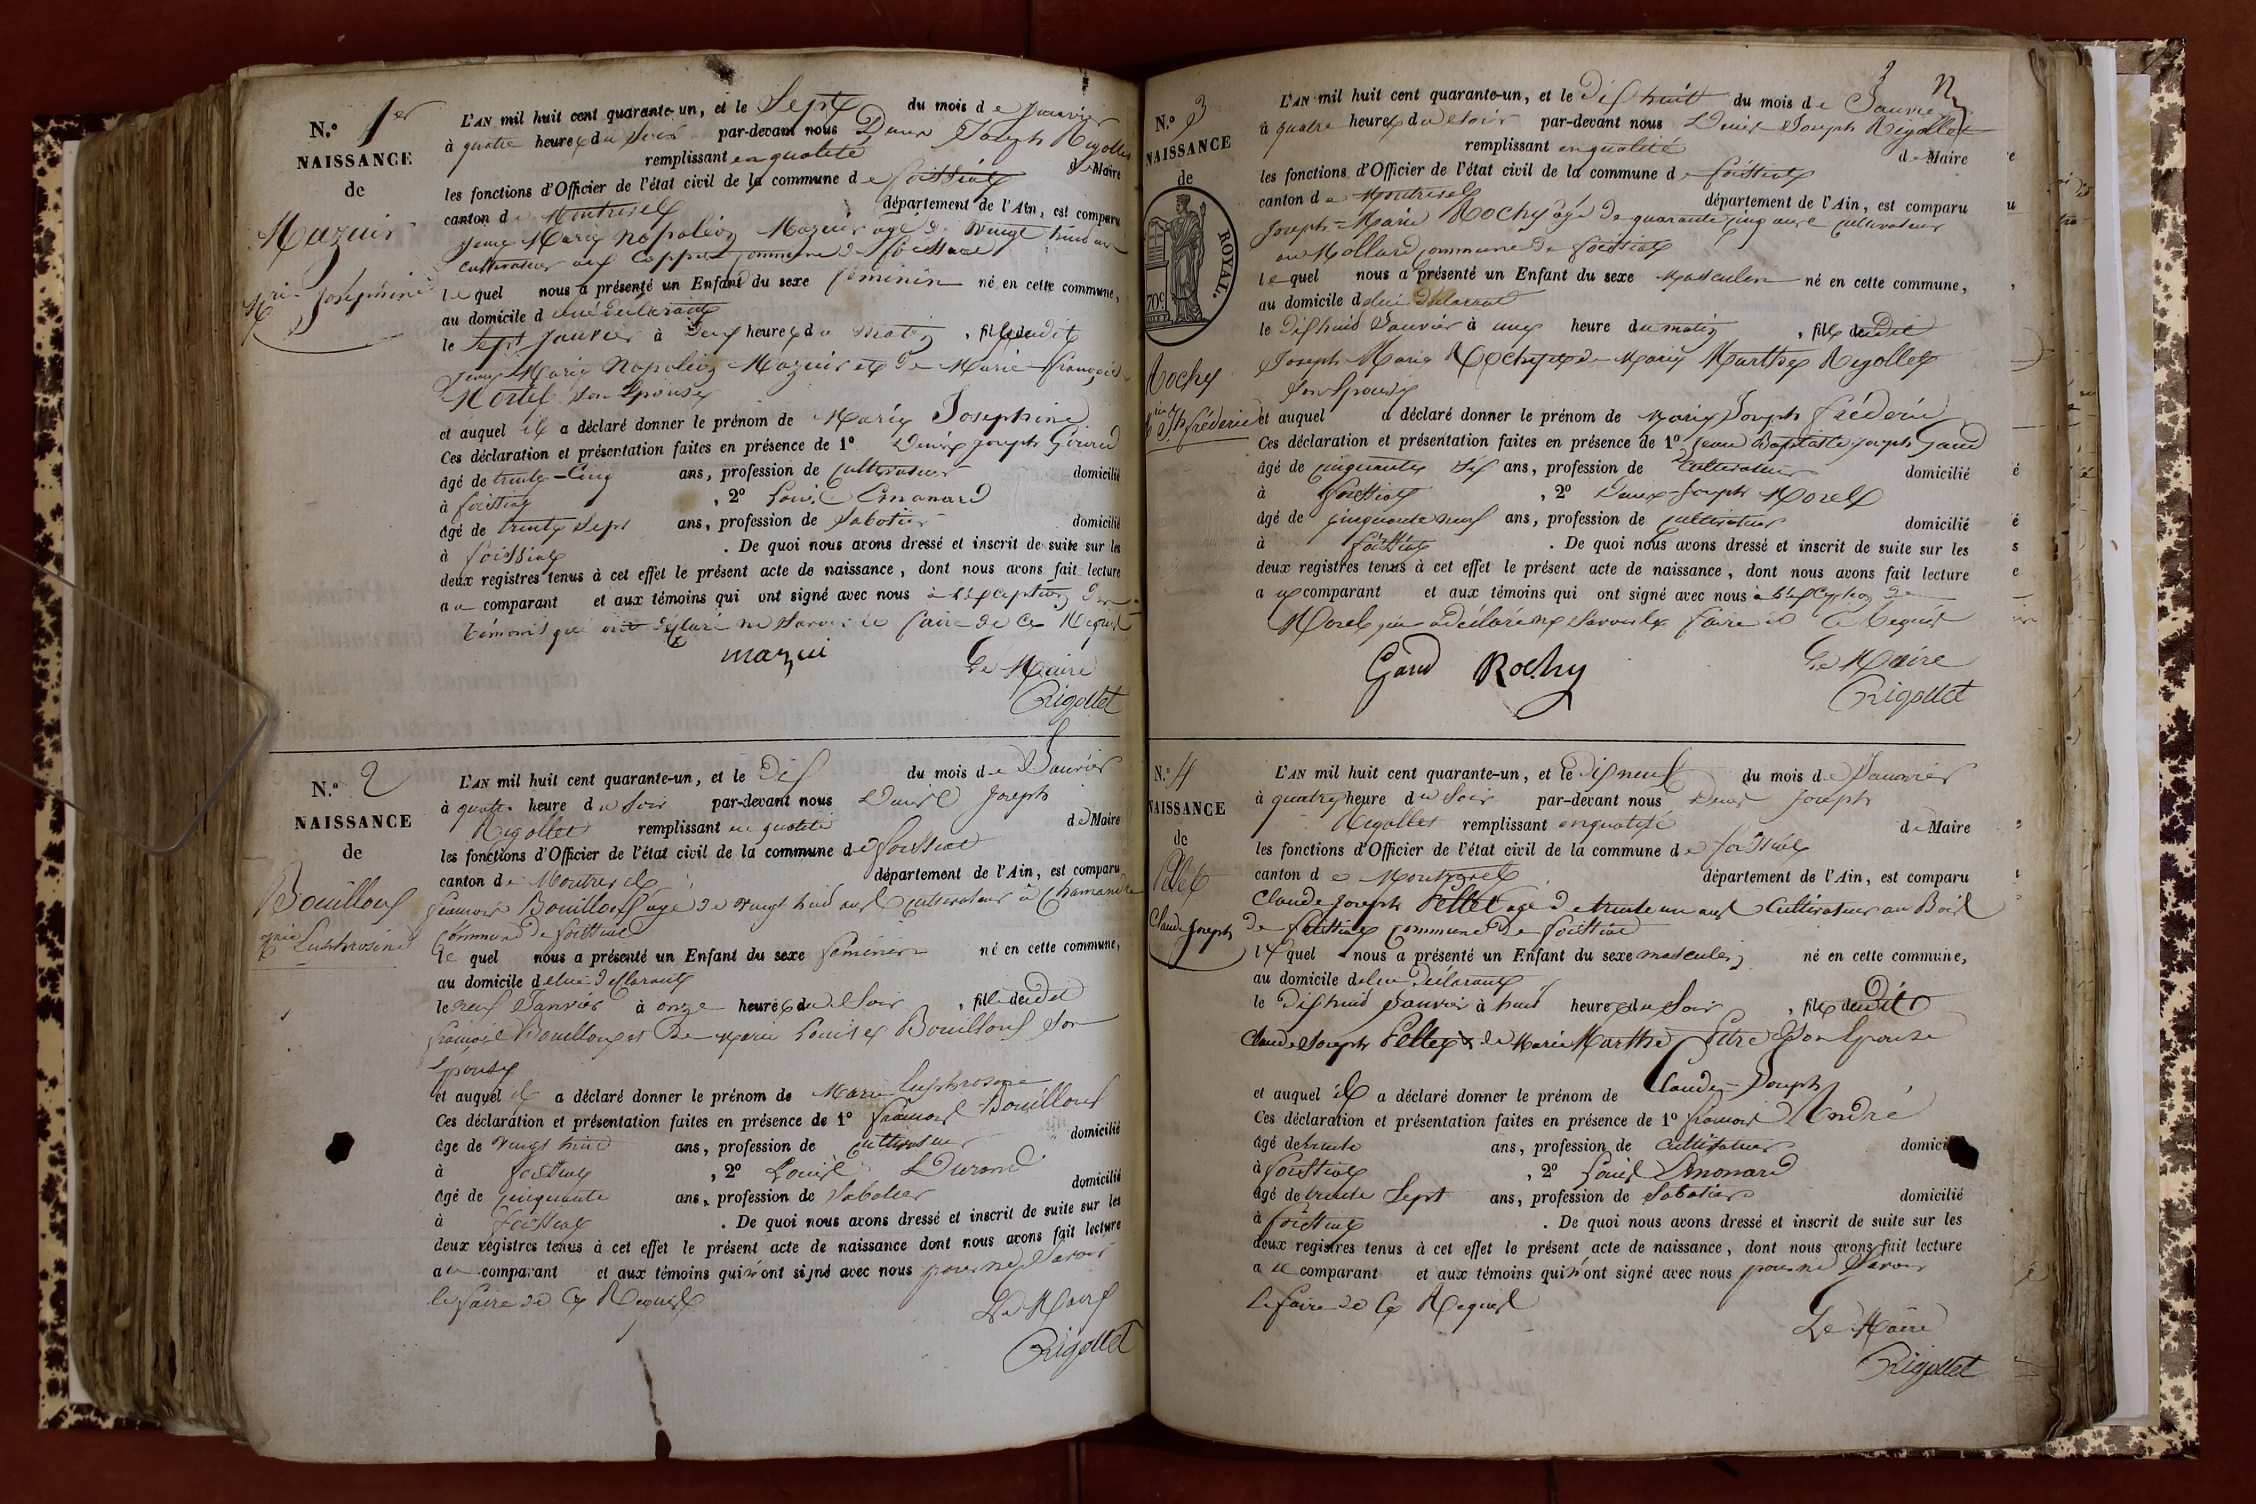 N.º 1er
NAISSANCE
de
Mazuir
Mrie Joséphine
L'AN mil huit cent quarante-un, et le Sept du mois de Janvier
à quatre heures du Soir par-devant nous Denis Joseph Rigollet
remplissant en qualité de Maire
les fonctions d'Officier de l'état civil de la commune de foissiat
canton de Montrevel département de l'Ain, est comparu
Jean Marie Napoléon Mazuir agé de vingt huit ans
cultivateur aux commune de foissiat
lequel nous a présenté un Enfant du sexe féminin né en cette commune,
au domicile de lui déclarant
le Sept Janvier à deux heures du matin, fille dudit
Jean Marie Napoléon Mazuir et de Marie françoise
Mortel son Epouse
et auquel il a déclaré donner le prénom de Marie Josephine
Ces déclaration et présentation faites en présence de 1º Denis Joseph Girard
âgé de trente-cinq ans, profession de cultivateur domicilié
à foissiat, 2º Louis Emonard
âgé de trente Sept ans, profession de Sabotier domicilié
à foissiat. De quoi nous avons dressé et inscrit de suite sur les
deux registres tenus à cet effet le présent acte de naissance, dont nous avons fait lecture
au comparant et aux témoins qui ont signé avec nous à l'exception des
témoins qui ont déclaré ne savoir le faire de ce Requis
mazui
Le Maire
Rigollet
N.º 2
NAISSANCE
de
Bouilloux
Mrie Euphrosine
L'AN mil huit cent quarante-un, et le Dix du mois de Janvier
à quatre heure du Soir par-devant nous Denis Joseph
Rigollet remplissant en qualité de Maire
les fonctions d'Officier de l'état civil de la commune de foissiat
canton de Montrevel département de l'Ain, est comparu
françois Bouilloux agé de vingt huit ans cultivateur à
commune de foissiat
le quel nous a présenté un Enfant du sexe féminin né en cette commune,
au domicile de lui déclarant
le neuf Janvier à onze heures du Soir, fille dudit
françois Bouilloux et de Marie Louise Bouilloux son
Epouse
et auquel il a déclaré donner le prénom de Marie Euphrosine
Ces déclaration et présentation faites en présence de 1º françois Bouilloux
âgé de vingt huit ans, profession de cultivateur domicilié
à foissiat, 2º Louis Durand
âgé de cinquante ans, profession de Sabotier domicilié
à foissiat. De quoi nous avons dressé et inscrit de suite sur les
deux registres tenus à cet effet le présent acte de naissance dont nous avons fait lecture
au comparant et aux témoins qui n'ont signé avec nous pour ne Savoir
le faire de ce Requis
Le Maire
Rigollet
N.º 3
NAISSANCE
de
ROYAL.
70c
Rochy
Mrie Jh fréderic
L'AN mil huit cent quarante-un, et le Dix huit du mois de Janvier
à quatre heures du Soir par-devant nous Denis Joseph Rigollet
remplissant en qualité de Maire
les fonctions d'Officier de l'état civil de la commune de foissiat
canton de Montrevel département de l'Ain, est comparu
Joseph-Marie Rochy agé de quarante cinq ans cultivateur
au Mollard commune de foissiat
lequel nous a présenté un Enfant du sexe Masculin né en cette commune,
au domicile de lui déclarant
le Dix huit Janvier à une heure du matin, fils dudit
Joseph Marie Rochy et de Marie Marthe Rigollet
son Epouse
et auquel a déclaré donner le prénom de Marie Joseph fréderic
Ces déclaration et présentation faites en présence de 1º Jean Baptiste Joseph Gaud
âgé de cinquante Six ans, profession de cultivateur domicilié
à foissiat, 2º Denis-Joseph Morel
âgé de cinquante neuf ans, profession de cultivateur domicilié
à foissiat. De quoi nous avons dressé et inscrit de suite sur les
deux registres tenus à cet effet le présent acte de naissance, dont nous avons fait lecture
au comparant et aux témoins qui ont signé avec nous à l'exception de
Morel qui a déclaré ne savoir le faire de ce Requis
Gaud Rochy
Le Maire
Rigollet
N.º 4
NAISSANCE
de
Pellet
Claude Joseph
L'AN mil huit cent quarante-un, et le Dix neuf du mois de Janvier
à quatre heure du Soir par-devant nous Denis Joseph
Rigollet remplissant en qualité de Maire
les fonctions d'Officier de l'état civil de la commune de foissiat
canton de Montrevel département de l'Ain, est comparu
Claude Joseph Pellet agé de trente un ans Cultivateur au Bois
de foissiat commune de foissiat
lequel nous a présenté un Enfant du sexe masculin né en cette commune,
au domicile de lui déclarant
le Dix huit Janvier à huit heures du Soir, fils dudit
Claude Joseph Pellet & de Marie Marthe son Epouse
et auquel il a déclaré donner le prénom de Claude-Joseph
Ces déclaration et présentation faites en présence de 1º françois André
âgé de trente ans, profession de cultivateur domicilié
à foissiat, 2º Louis Emonard
âgé de trente Sept ans, profession de Sabotier domicilié
à foissiat. De quoi nous avons dressé et inscrit de suite sur les
deux registres tenus à cet effet le présent acte de naissance, dont nous avons fait lecture
au comparant et aux témoins qui n'ont signé avec nous pour ne Savoir
le faire de ce Requis
Le Maire
Rigollet